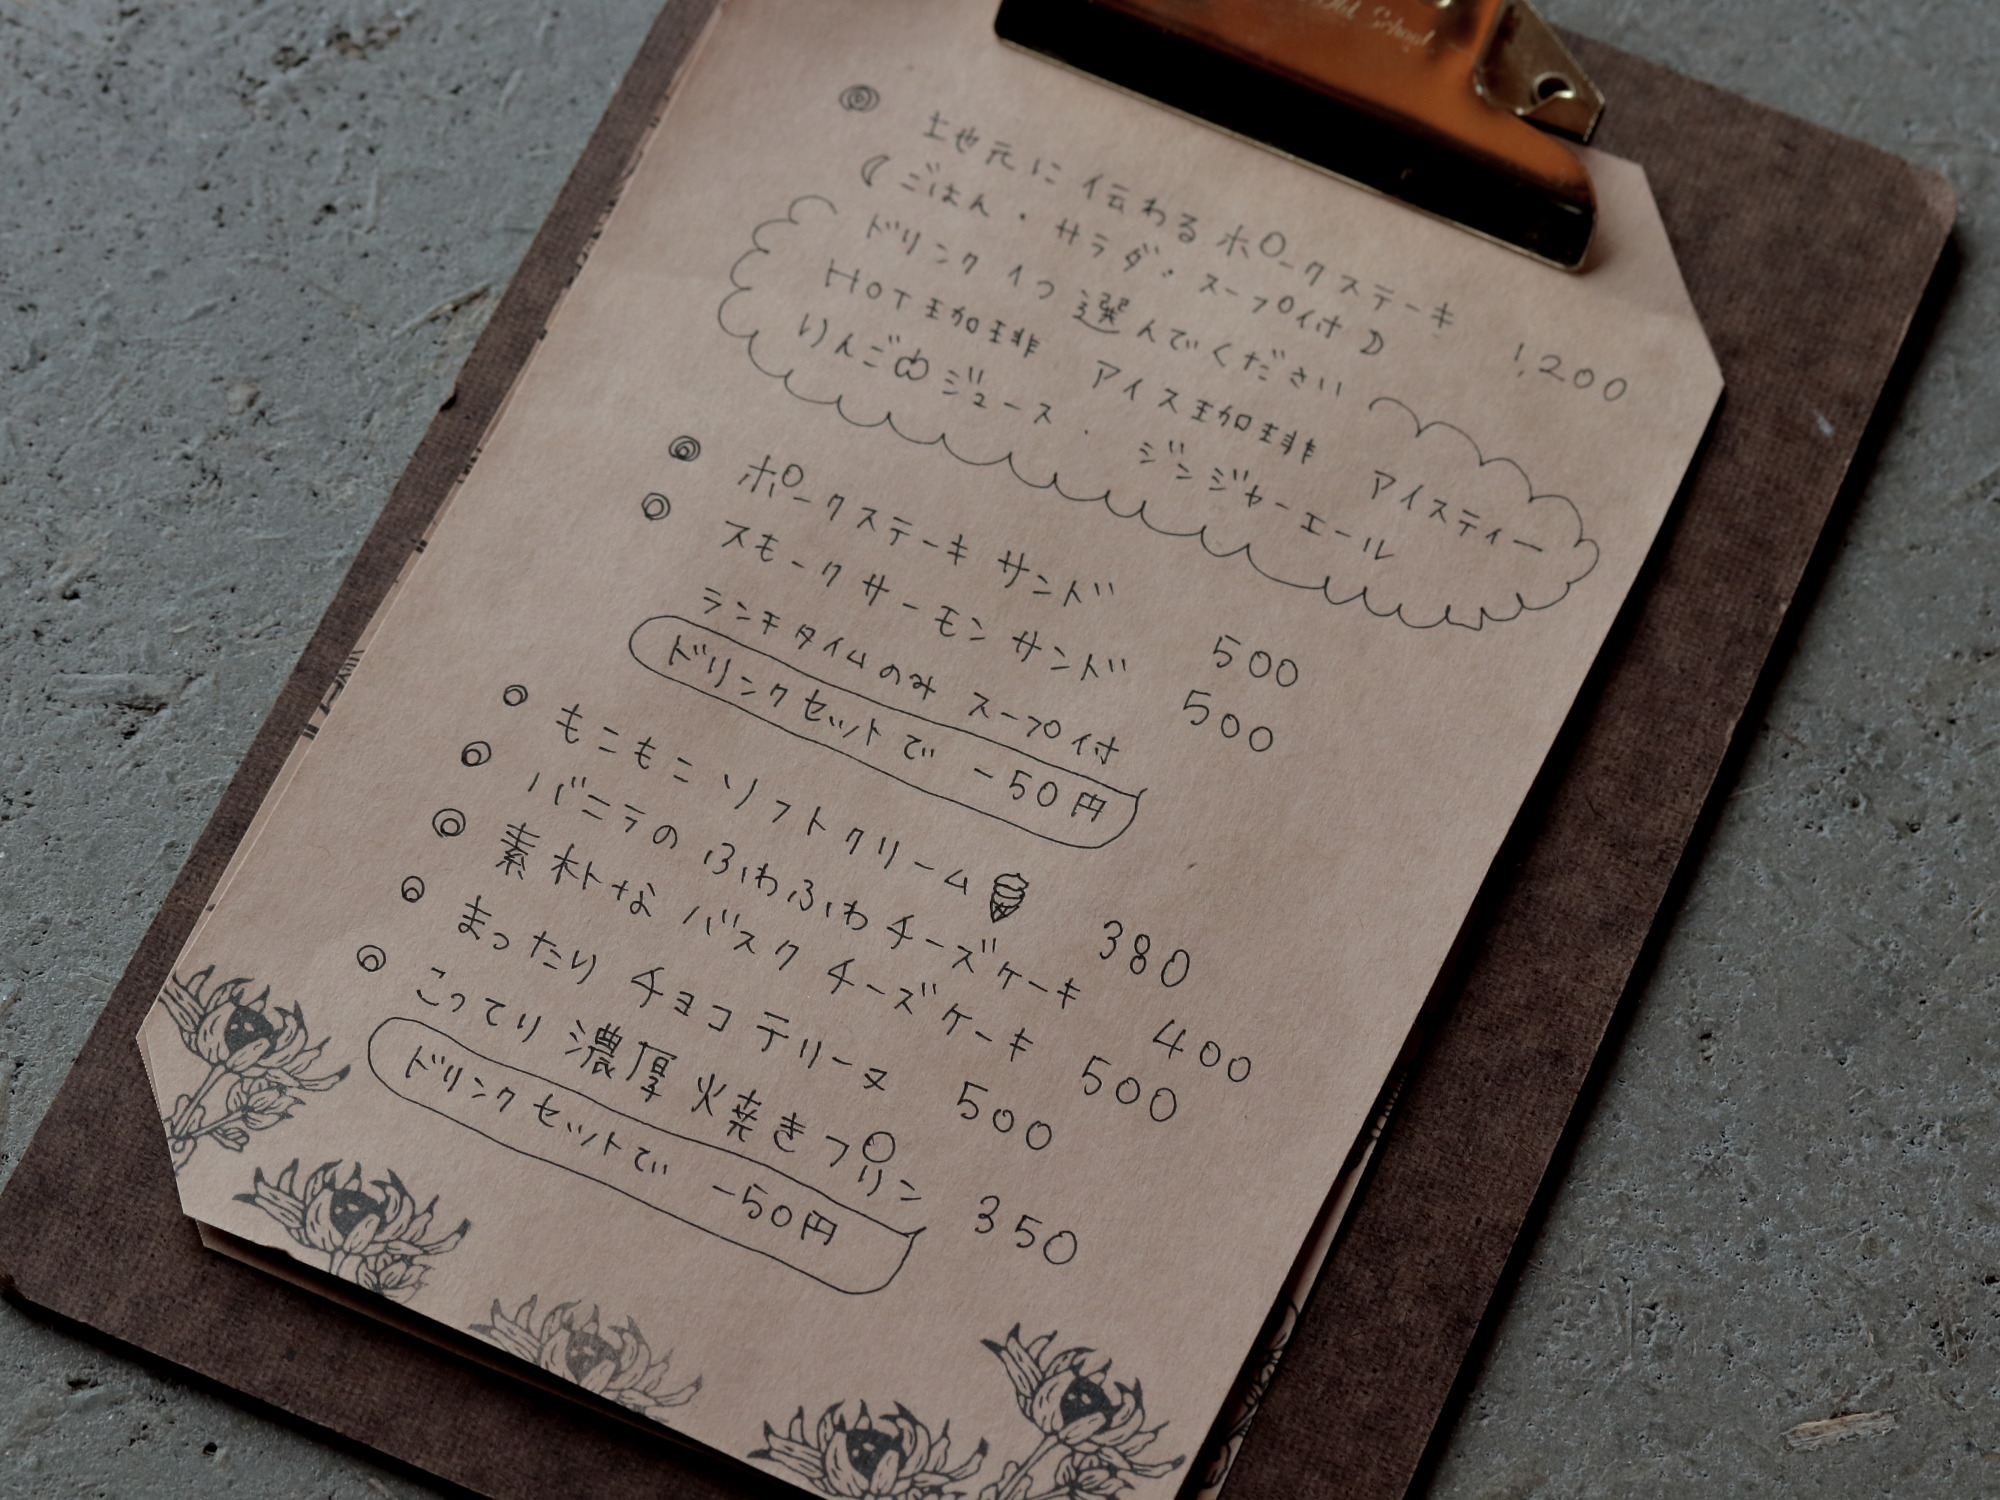 Old School
◎ 地元に伝わるポークステーキ 1,200
(ごはん・サラダ・スープ付)
ドリンク1つ選んでください
HOT珈琲 アイス珈琲 アイスティー
りんごジュース・ジンジャーエール
◎ ポークステーキサンド 500
◎ スモークサーモンサンド 500
ランチタイムのみスープ付
ドリンクセットで -50円
◎ もこもこソフトクリーム 380
◎ バニラのふわふわチーズケーキ 400
◎ 素朴なバスクチーズケーキ 500
◎ まったりチョコテリーヌ 500
◎ こってり濃厚焼きプリン 350
ドリンクセットで -50円